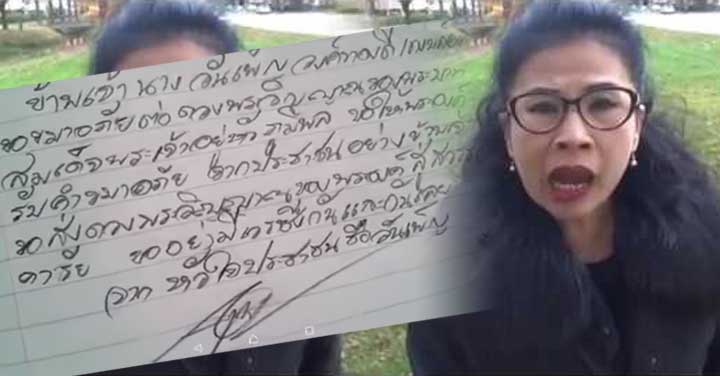 ข้าพเจ้า นาง วันเพ็ญ
ขอขมาอภัยต่อดวงพระวิญญาณของ
สมเด็จพระเจ้าอยู่หัว ภูมิพล ขอให้พระองค์
รับคำขมาอภัย จากประชาชนอย่างข้าพเจ้า
ขอส่งดวงพระวิญญาณของพระองค์ สู่สวรร
คาลัย ขออย่ามีเวรซึ่งกันและกันเลย
จาก หัวใจประชาชน ชื่อวันเพ็ญ